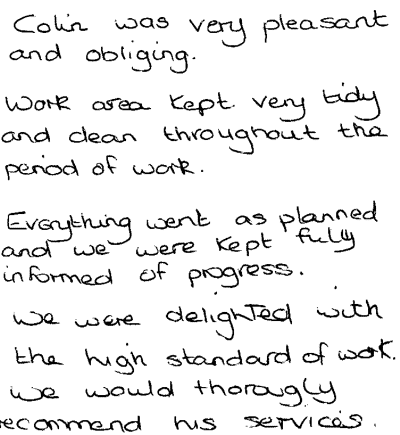 Colin was very pleasant
and obliging.
Work area kept very tidy
and clean throughout the
period of work.
Everything went as planned
and we were kept fully
informed of progress.
We were delighted with
the high standard of work.
We would thorougly
recommend his services.